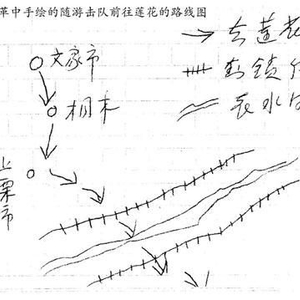 革中手绘的随游击队前往莲花的路线图
去莲花
文家市
封锁
桐木
袁水
上栗市